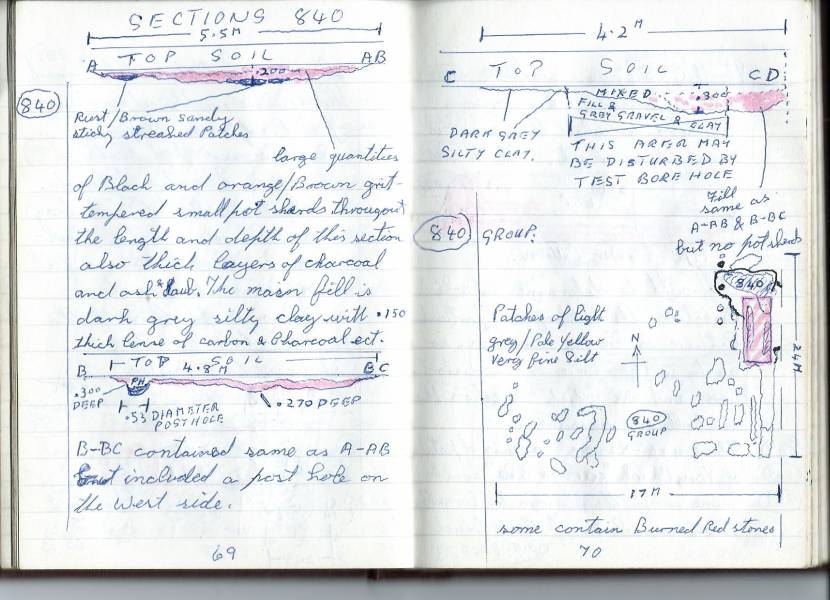 SECTIONS 840
5.5M
TOP SOIL
A
AB
.200
840
Rust/Brown sandy
sticky streaked Patches
large quantities
of Black and orange/Brown grit-
tempered small pot sherds througout
the length and depth of this section
also thick layers of charcoal
and ash & Daub. The main fill is
dark grey silty clay with .150
thick lense of carbon & charcoal ect.
TOP SOIL
B
4.8M
BC
PH
.300
DEEP
.53 DIAMETER
POST HOLE
.270 DEEP
B-BC contained same as A-AB
but included a post hole on
the West side.
69
4.2M
C
TOP SOIL
CD
MIXED
FILL &
GREY GRAVEL & CLAY
.300
DARK GREY
SILTY CLAY.
THIS AREA MAY
BE DISTURBED BY
TEST BORE HOLE
Fill
same as
A-AB & B-BC
but no pot sherds
840
GROUP.
840
Patches of light
grey/Pale Yellow
very fine Silt
N
24M
840
GROUP
17M
some contain Burned Red stones
70